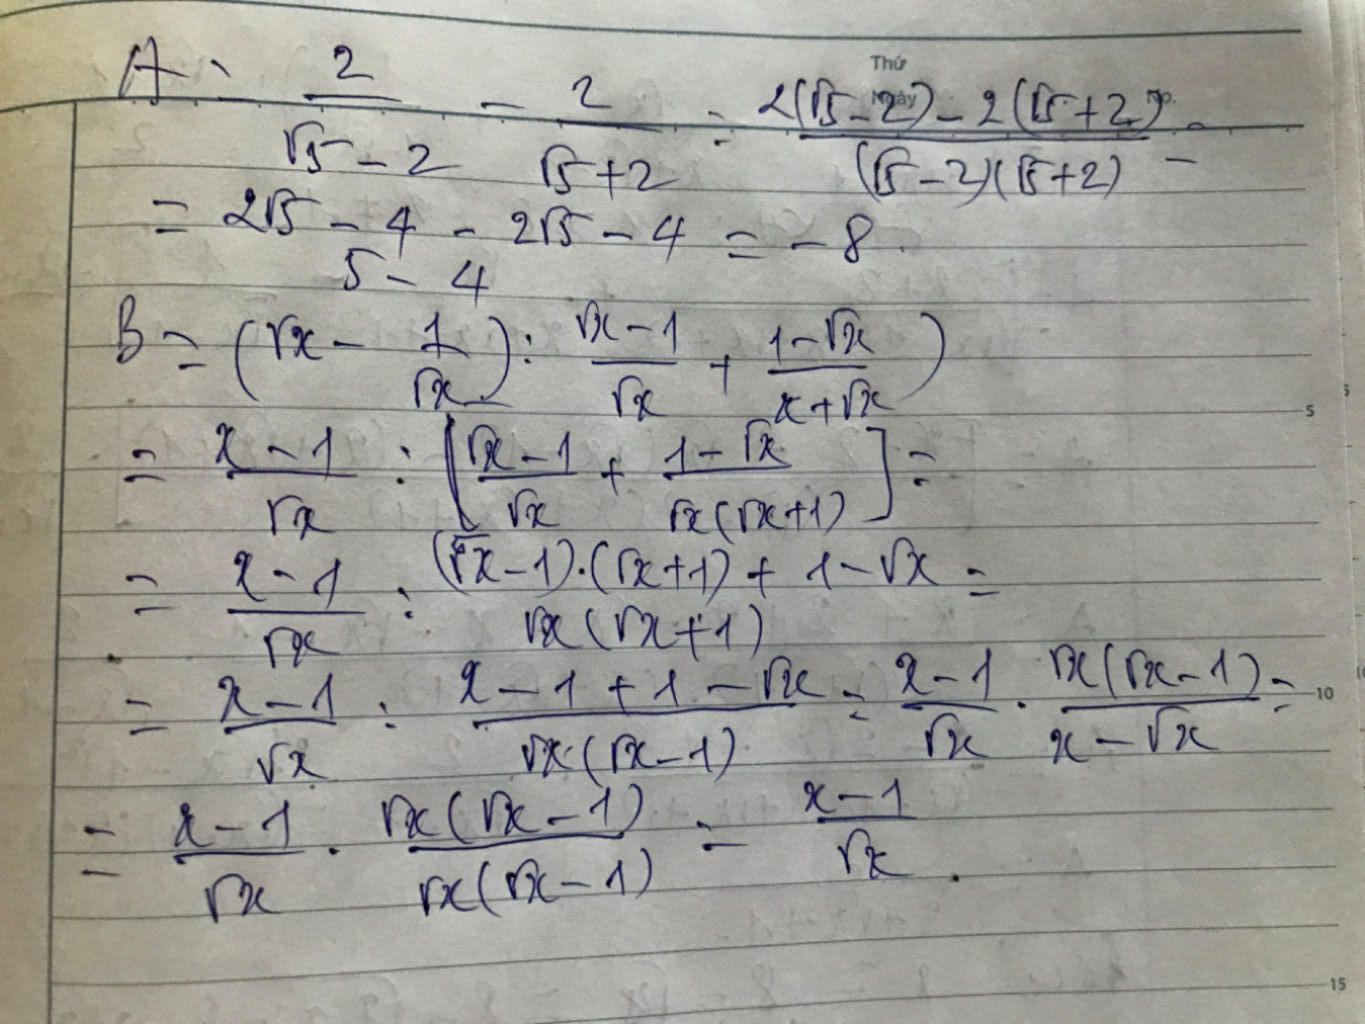 Thứ
Ngày
No.
A = 2/(√5 - 2) - 2/(√5 + 2) = (2(√5 - 2) - 2(√5 + 2))/((√5 - 2)(√5 + 2)) =
= (2√5 - 4 - 2√5 - 4)/(5 - 4) = - 8.
B = (√x - 1/√x) : (√x - 1)/√x + (1 - √x)/(x + √x))
= (x - 1)/√x : [(√x - 1)/√x + (1 - √x)/(√x(√x + 1))] =
= (x - 1)/√x : ((√x - 1).(√x + 1) + 1 - √x)/(√x(√x + 1)) =
= (x - 1)/√x : (x - 1 + 1 - √x)/(√x.(√x - 1)) = (x - 1)/√x . (√x(√x - 1))/(x - √x) =
= (x - 1)/√x . (√x(√x - 1))/(√x(√x - 1)) = (x - 1)/√x .
5
10
15